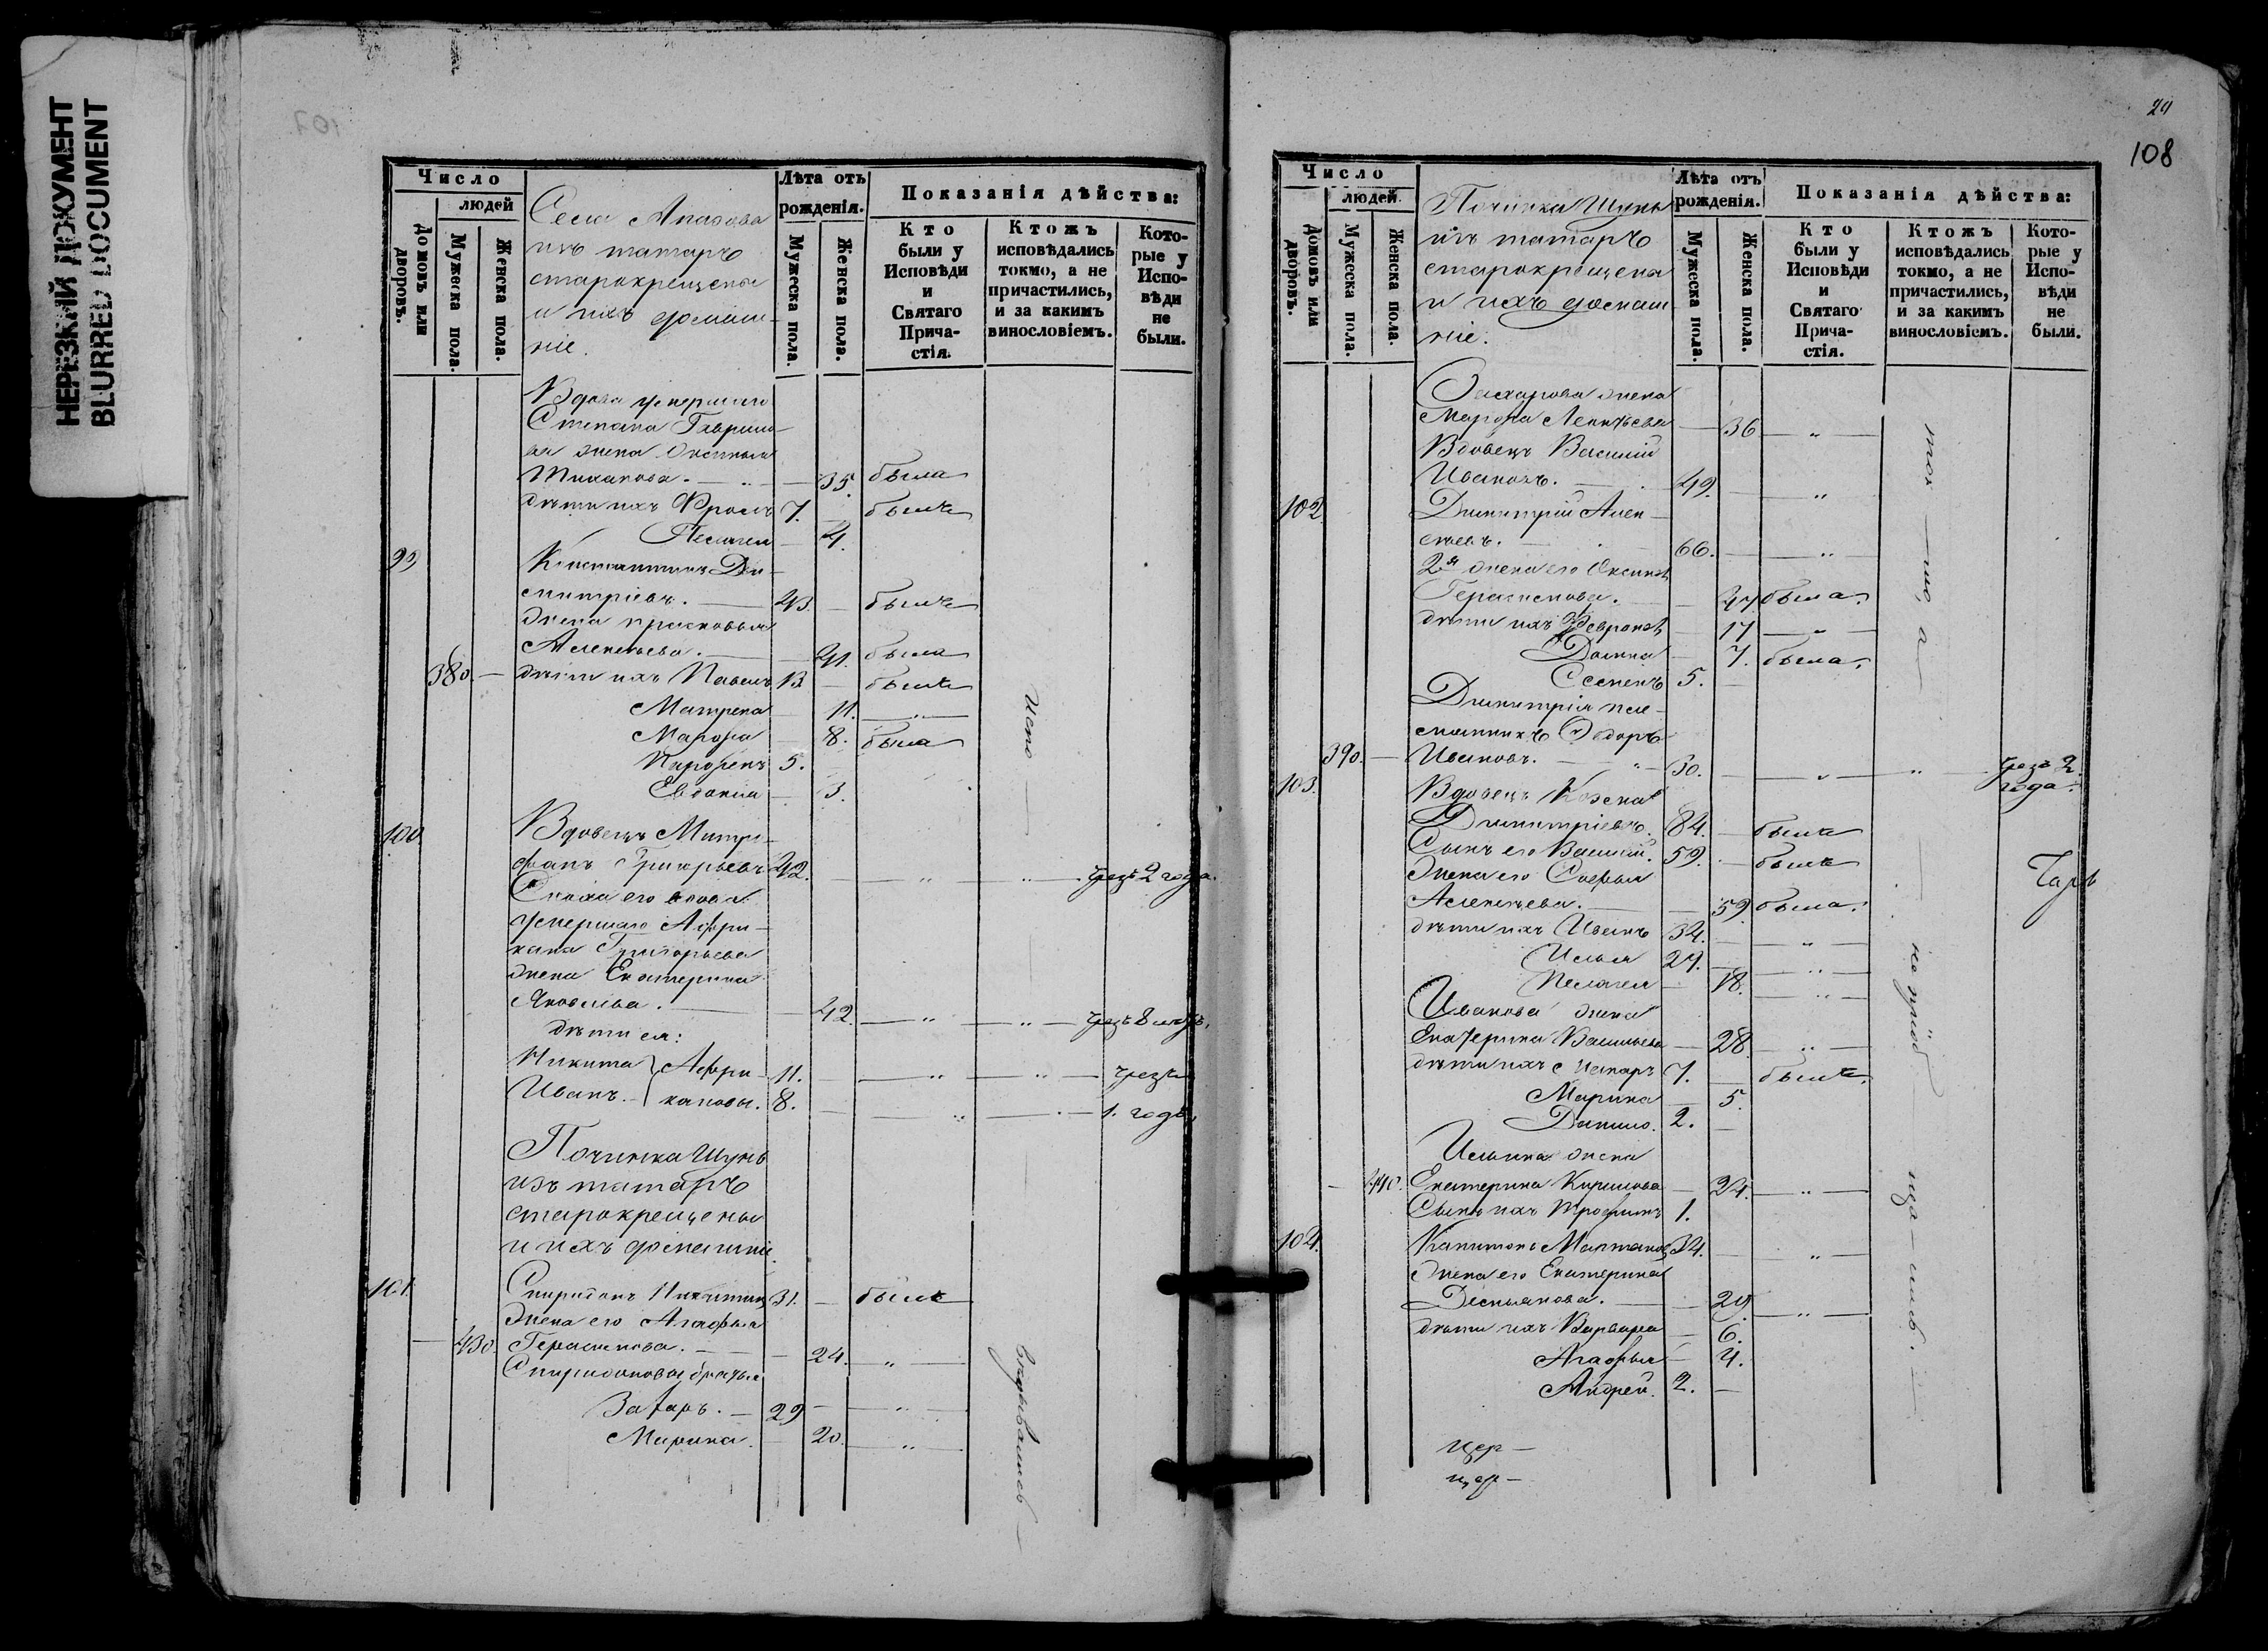 НЕРЕЗКИЙ ДОКУМЕНТ
BLURRED DOCUMENT
107
Число
людей
Домовъ или дворовъ.
Мужеска пола.
Женска пола.
Села
изъ татаръ
старокрещены
и ихъ домаш-
ніе.
Лѣта отъ рожденія.
Мужеска пола.
Женска пола.
Показанія дѣйства:
Кто были у Исповѣди и Святаго Прича-стія.
Ктожъ исповѣдались токмо, а не причастились, и за какимъ винословіемъ.
Кото-рые у Испо-вѣди не были.
Вдова умершаго
Степана Гаврило-
ва жена Оксинья
35. была
дѣти ихъ Фролъ 7. былъ
Пелагея 4.
99 Константинъ Ди-
митріевъ. 43. былъ
Жена Прасковья
Алексѣева. 41. была
380. дѣти ихъ Павелъ 13 былъ
Матрена 11. "
Марфа 8. была
Парфенъ 5.
Евдокия 3.
100 Вдовецъ Митро-
фанъ Григорьевъ 42. " " чрезъ 2 года.
Сноха его вдова
умершаго Афри-
кана Григорьева
жена Екатерина
Яковлева. 42. " " чрезъ 8 лѣтъ.
дѣти ея:
Никита Афри- 11. " " чрезъ
Иванъ. кановы. 8. " 1. годъ.
Починка Шунь
изъ татаръ
старокрещены
и ихъ домашніе.
101. Спиридонъ Никитинъ 31. былъ
Жена его Агафья
430. Герасимова. 24. "
Спиридоновы братья
Захаръ. 29 "
Марина. 20. "
Испо
вѣдывались
24
108
Число
людей.
Домовъ или дворовъ.
Мужеска пола.
Женска пола.
Починка Шунь
изъ татаръ
старокрещены
и ихъ домаш-
ніе.
Лѣта отъ рожденія.
Мужеска пола.
Женска пола.
Показанія дѣйства:
Кто были у Исповѣди и Святаго Прича-стія.
Ктожъ исповѣдались токмо, а не причастились, и за какимъ винословіемъ.
Кото-рые у Испо-вѣди не были.
Захарова жена
Марфа Леонтьева 36 "
Вдовецъ Василій
Ивановъ. 49. "
102. Димитрій Алек-
сѣевъ. 66. "
2я жена его Оксинья
Герасимова. 47 была.
дѣти ихъ Февронья 17 "
Домна 7. была.
Семенъ 5.
Димитрія пле-
мянникъ Ѳедоръ
390. Ивановъ. 30. " " чрезъ 2.
года.
103. Вдовецъ Козема
Димитріевъ. 84. былъ
Сынъ его Василій. 59. былъ
Жена его Софья
Алексѣева. 59 была.
дѣти ихъ Иванъ 34. "
Илья 29. "
Пелагея 18. "
Иванова жена
Екатерина Васильева 28 "
дѣти ихъ Макаръ 7. былъ.
Марина 5.
Данило. 2.
Ильина жена
440. Екатерина Кирилова 24. "
Сынъ ихъ Трофимъ 1.
104. Капитонъ 34. "
Жена его Екатерина
Демьянова. 29. "
дѣти ихъ Варвара 6.
Агафья 4.
Андрей. 2.
ток — мо, а — не пріоб — ща — лись.
Царь
цер —
цер —